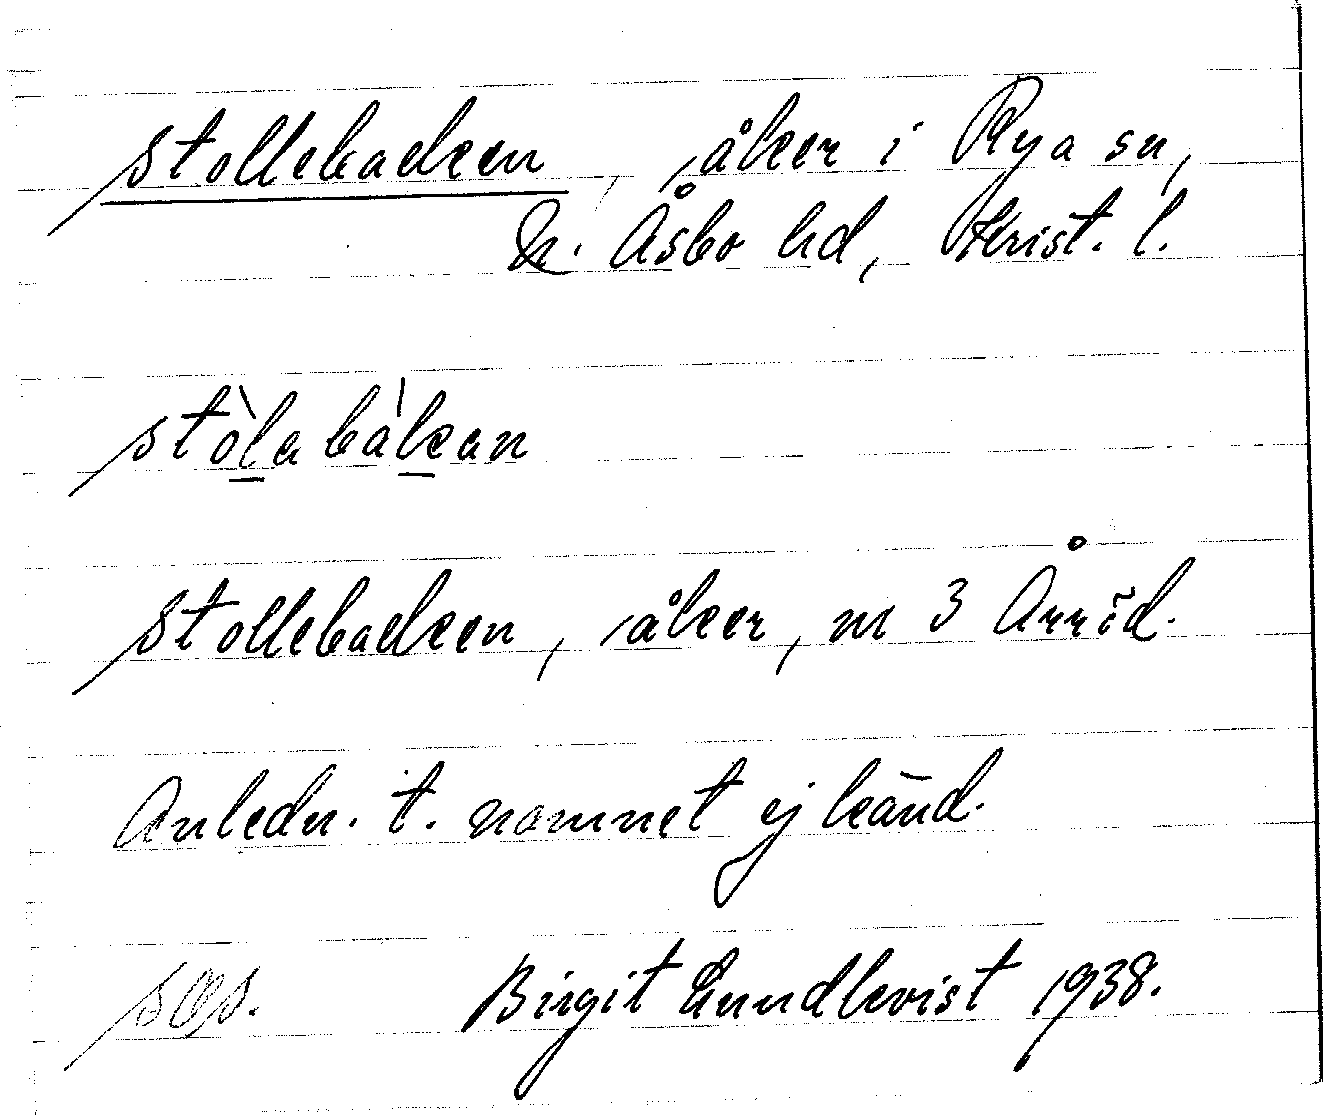 Stollebacken, åker i Rya sn,
N. Åsbo hd, Krist. l.
stòlabàkan
Stollebacken, åker, nr 3 Arröd.
Anledn. t. namnet ej känd.
Birgit Lundkvist 1938.